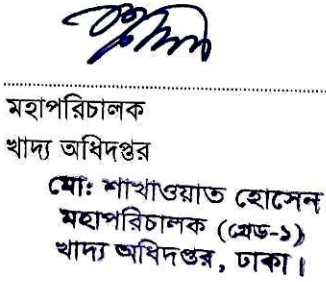 মহাপরিচালক
খাদ্য অধিদপ্তর
মো: শাখাওয়াত হোসেন
মহাপরিচালক (গ্রেড-১)
খাদ্য অধিদপ্তর, ঢাকা।